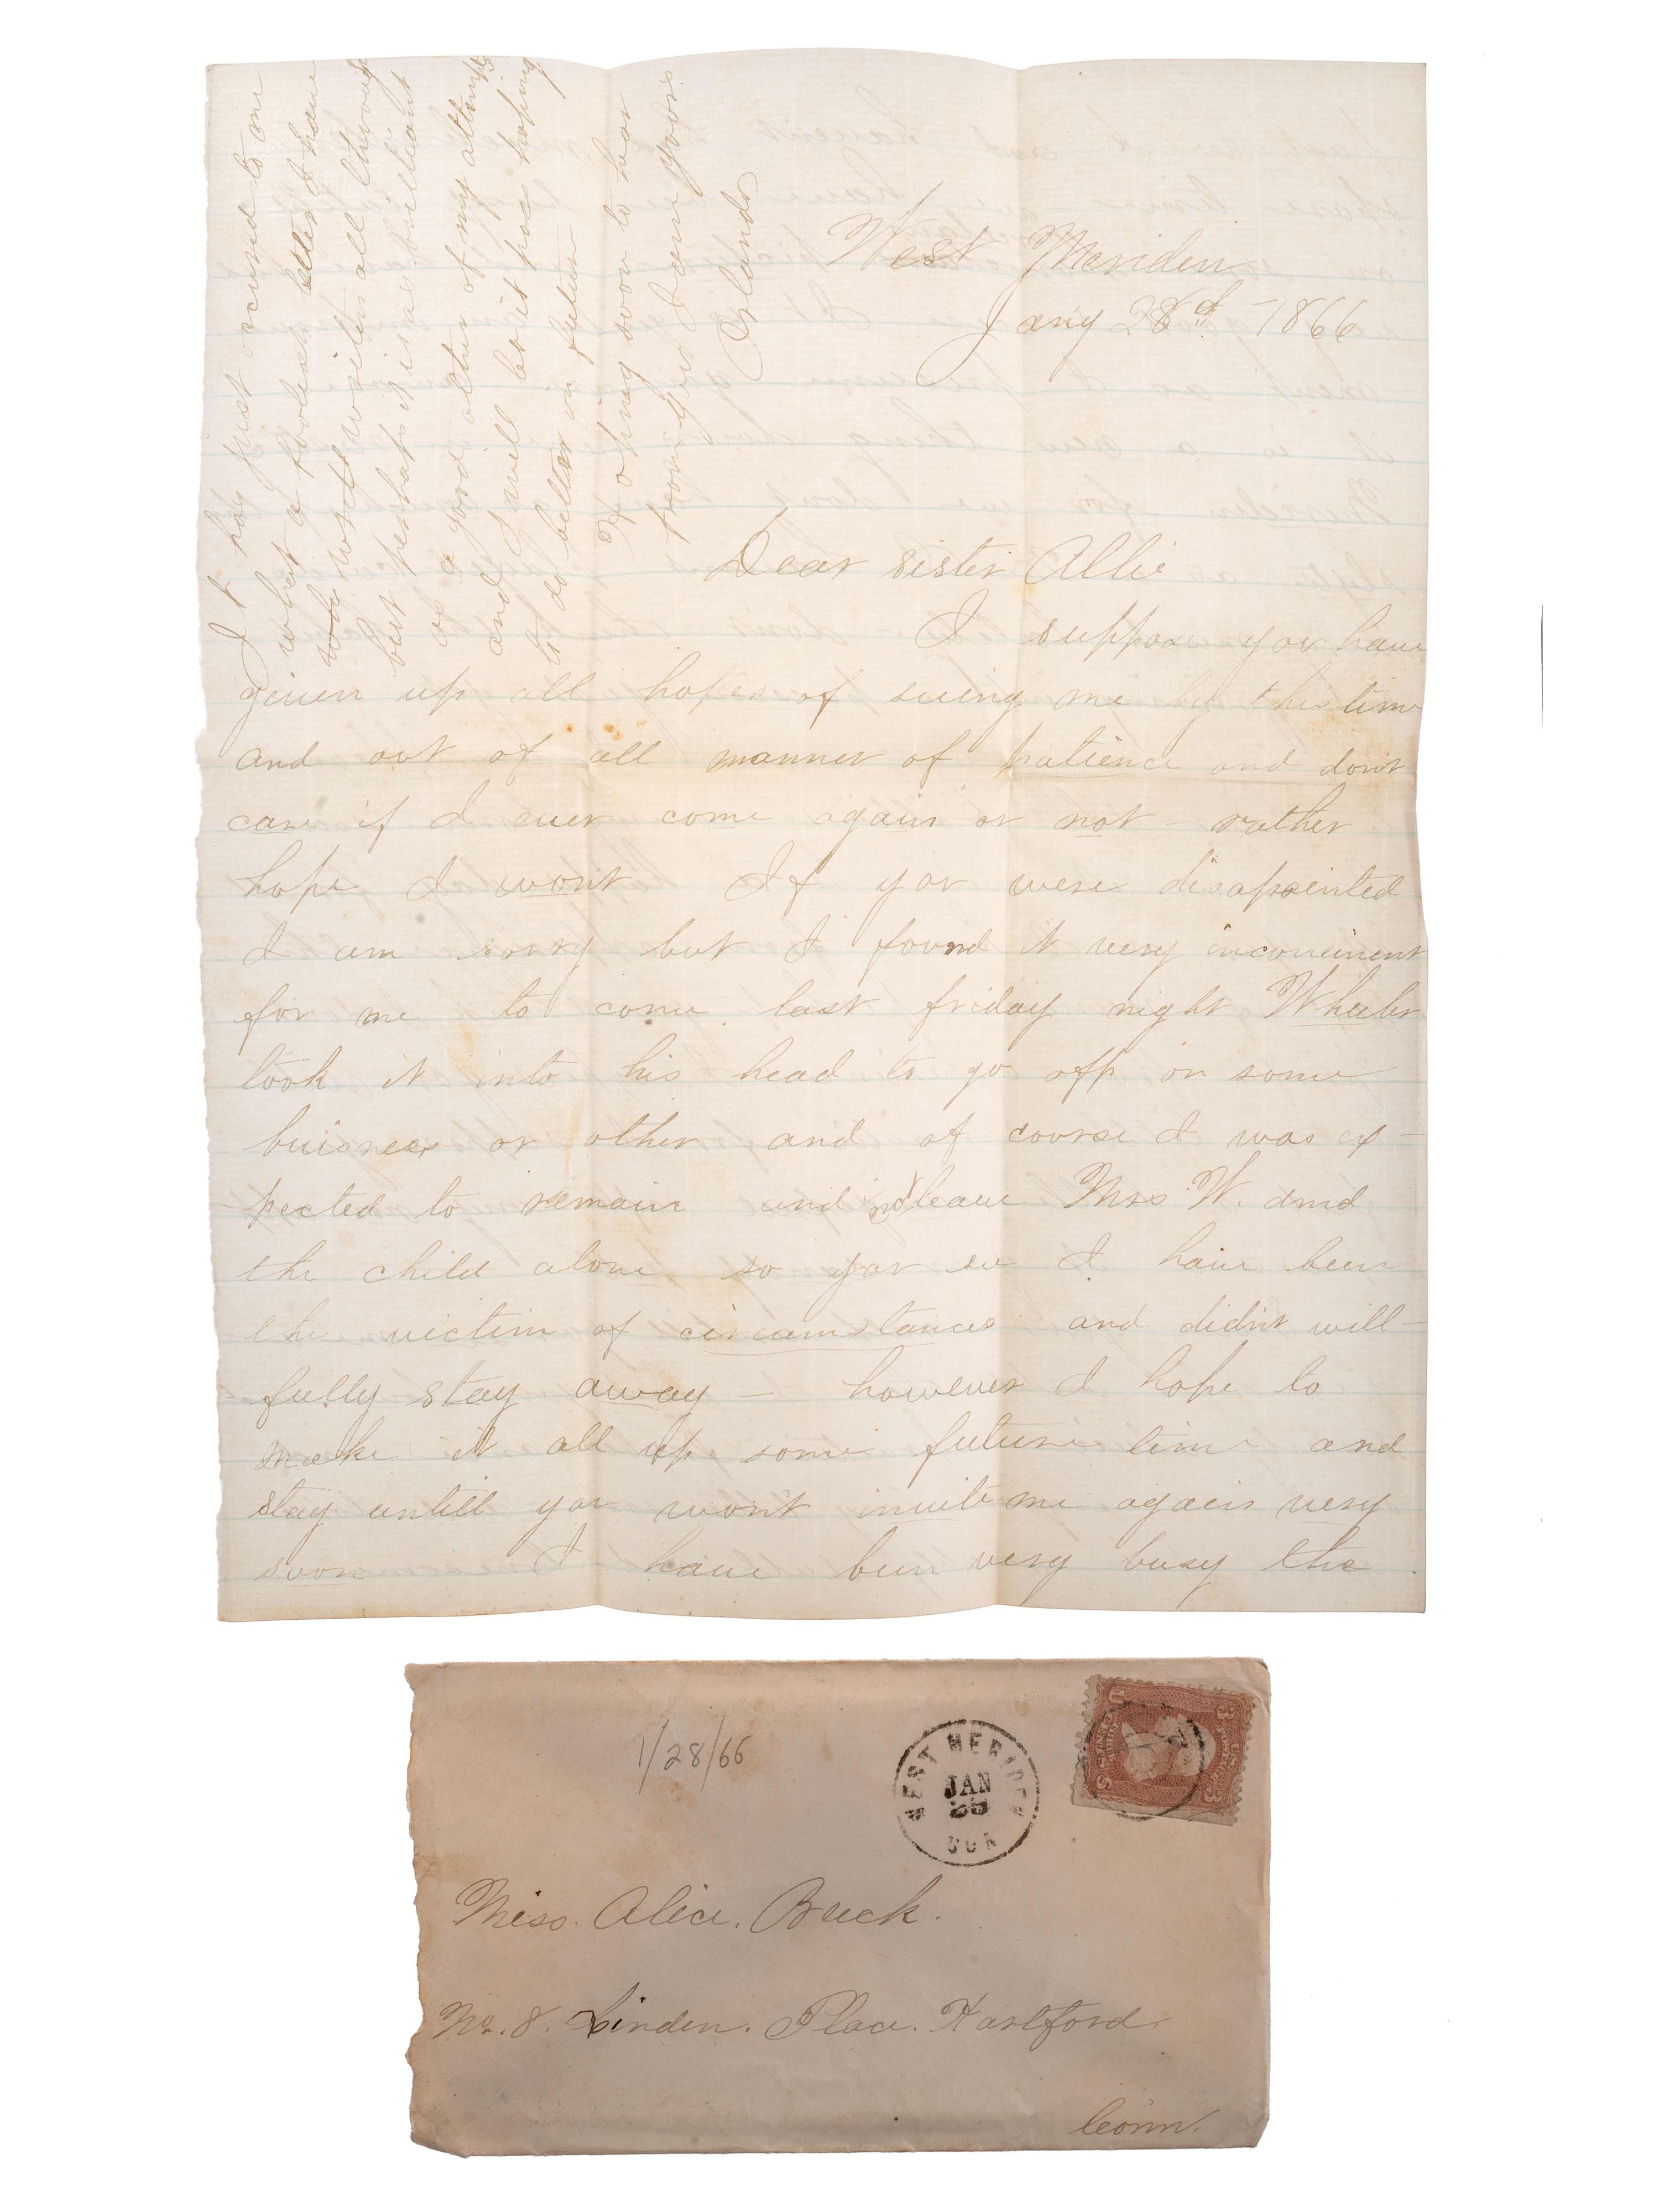 West Meriden
Jany 28th - 1866
Dear sister Allie
I suppose you have
given up all hopes of seeing me by this time
and out of all manner of patience and don't
care if I ever come again or not - rather
hope I won't If you were disapointed
I am sorry but I found it very inconvinent
for me to come last friday night Wheeler
took it into his head to go off on some
buisness or other and of course I was ex-
pected to remain and not leave Mrs W. and
the child alone so you see I have been
the victim of circumstances and didn't will-
-fully stay away - however I hope to
make it all up some future time and
stay untill you won't invite me again very
soon I have been very busy the
It has just occured to me
what a foolish letter I have
wrote written all through
but perhaps it is as brilliant
as a good other of my attempts
and I will let it pass hoping
to do better in future
Hoping soon to hear
from you I am yours
Orlando
1/28/66
WEST MERIDEN
JAN
28
CON
U.S.
3
3
Miss. Alice. Buck.
No. 8. Linden. Place. Hartford
Conn.